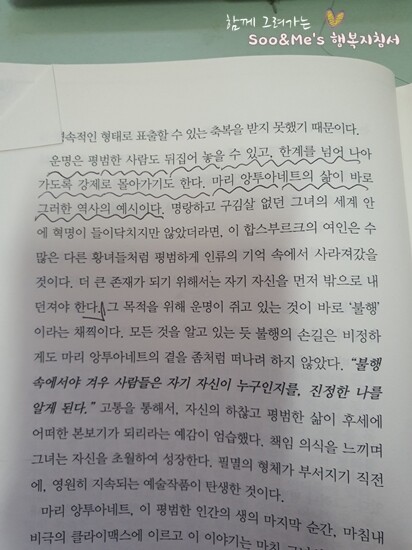 함께 그려가는
Soo&Me's 행복지침서
속적인 형태로 표출할 수 있는 축복을 받지 못했기 때문이다.
운명은 평범한 사람도 뒤집어 놓을 수 있고, 한계를 넘어 나아
가도록 강제로 몰아가기도 한다. 마리 앙투아네트의 삶이 바로
그러한 역사의 예시이다. 명랑하고 구김살 없던 그녀의 세계 안
에 혁명이 들이닥치지만 않았더라면, 이 합스부르크의 여인은 수
많은 다른 황녀들처럼 평범하게 인류의 기억 속에서 사라져갔을
것이다. 더 큰 존재가 되기 위해서는 자기 자신을 먼저 밖으로 내
던져야 한다. 그 목적을 위해 운명이 쥐고 있는 것이 바로 ‘불행’
이라는 채찍이다. 모든 것을 알고 있는 듯 불행의 손길은 비정하
게도 마리 앙투아네트의 곁을 좀처럼 떠나려 하지 않았다. “불행
속에서야 겨우 사람들은 자기 자신이 누구인지를, 진정한 나를
알게 된다.” 고통을 통해서, 자신의 하찮고 평범한 삶이 후세에
어떠한 본보기가 되리라는 예감이 엄습했다. 책임 의식을 느끼며
그녀는 자신을 초월하여 성장한다. 필멸의 형체가 부서지기 직전
에, 영원히 지속되는 예술작품이 탄생한 것이다.
마리 앙투아네트, 이 평범한 인간의 생의 마지막 순간, 마침내
비극의 클라이맥스에 이르고 이 이야기는 마치